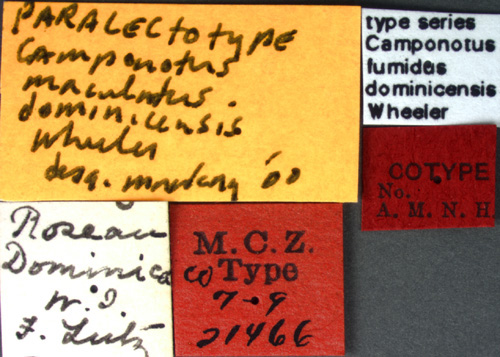 PARALECTOTYPE
Camponotus
maculatus.
dominicensis
Wheeler
desg. mackay '00
type series
Camponotus
fumidus
dominicensis
Wheeler
COTYPE
No.
A. M. N. H.
Roseau
Dominica
W. I.
F. Lutz
M. C. Z.
co Type
7-9
21466